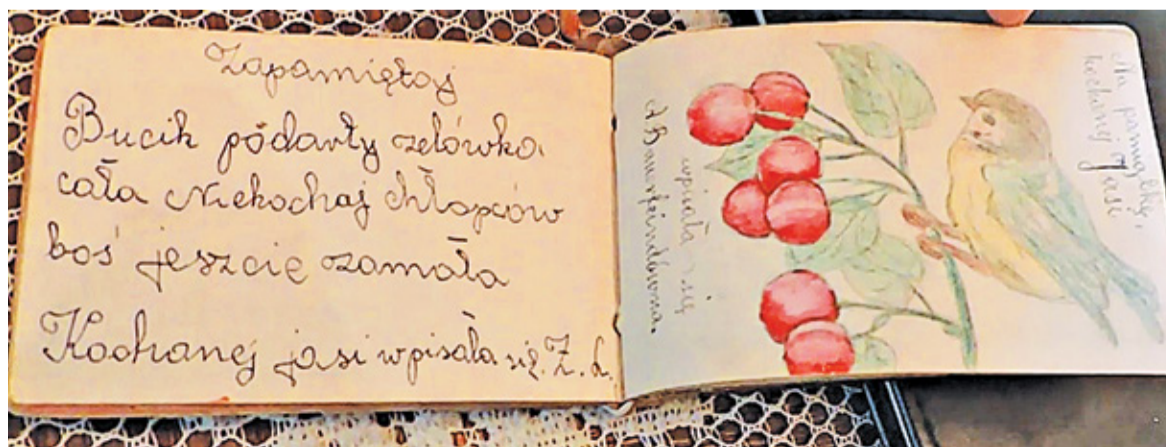 Zapamiętaj
Bucik pódarty zelówka
cała Niekochaj chłopców
boś jeszcie zamała
Kochanej jasi wpisała się. Z. L.
Na pamiątkę
kochanej Jasi
wpisała się